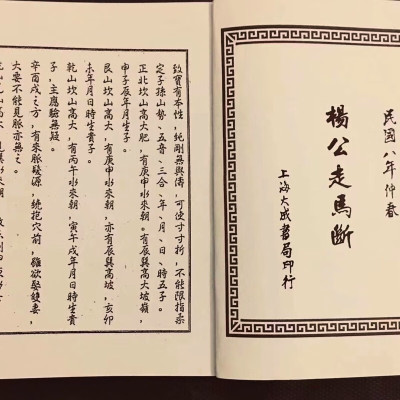 民國八年仲春
楊公走馬斷
上海大成書局印行
致寶有本性，純剛無與儔，可使寸寸折，不能限指柔
定子孫山勢、五音、三合、年、月、日、時五子。
正北坎山高大肥，有庚申水來朝。有辰巽高大坡嶺，
申子辰年月生子。
艮山坎山高大，有庚申水來朝，亦有辰巽高坡，亥卯
未年月日時生貴子。
乾山坎山高大，有丙午水來朝，寅午戌年月日時生貴
子，主應驗無疑。
辛酉戌之方，有來脈發源，繞抱穴前，雖欲娶雙妻，
大要不能見脈亦無之。